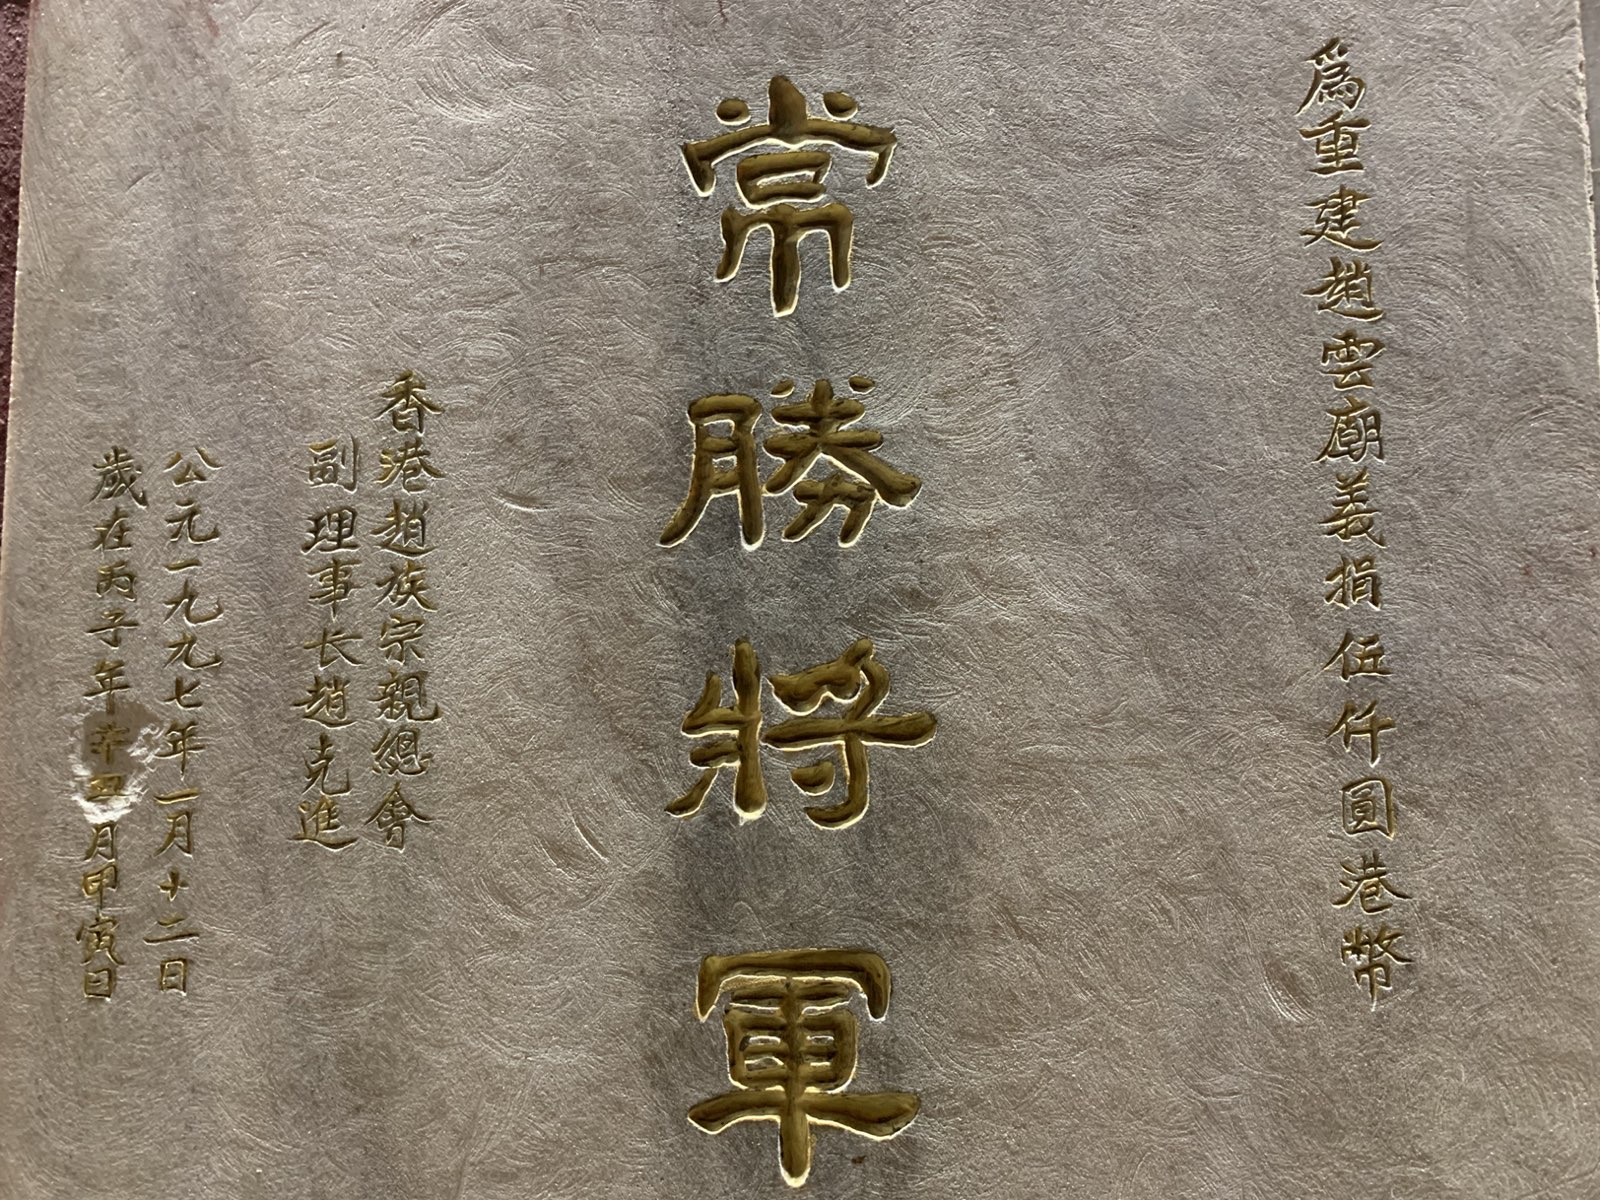 爲重建趙雲廟義捐伍仟圓港幣
常勝將軍
香港趙族宗親總會
副理事长趙克進
公元一九九七年一月十二日
歲在丙子年辛丑月甲寅日